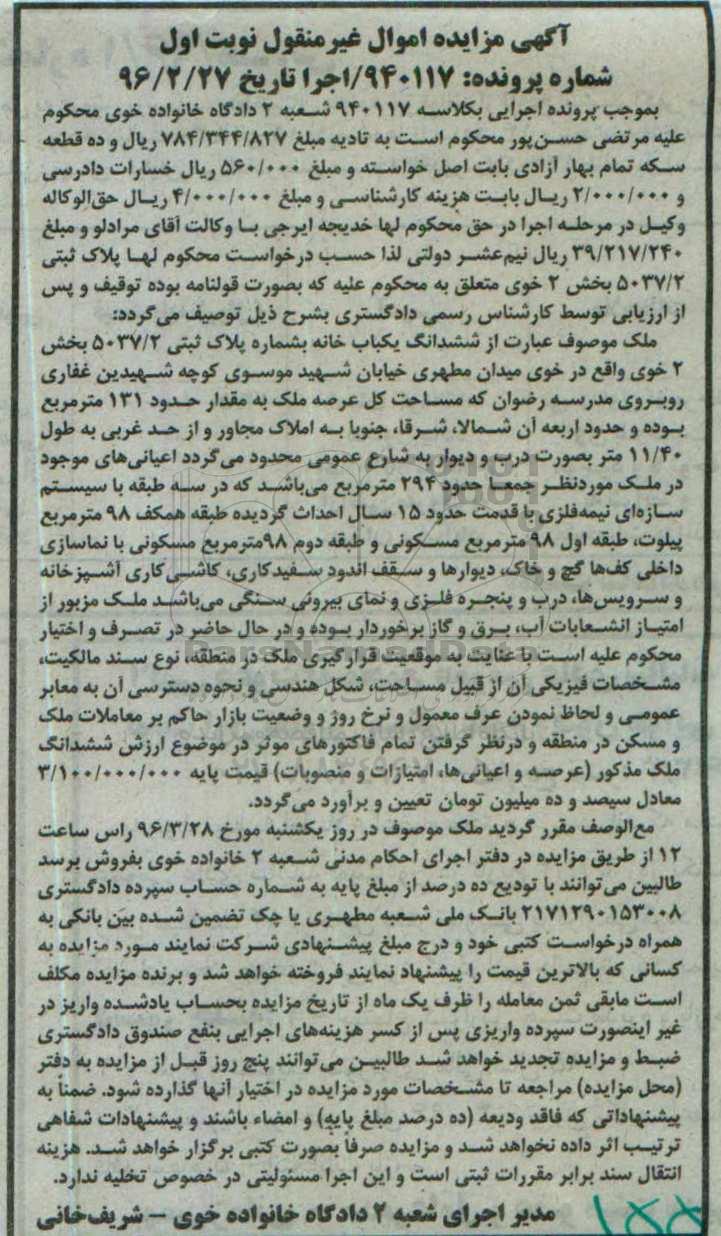 آگهی مزایده اموال غیرمنقول نوبت اول
شماره پرونده: ۹۴۰۱۱۷/اجرا تاریخ ۹۶/۲/۲۷
بموجب پرونده اجرایی بکلاسه ۹۴۰۱۱۷ شعبه ۲ دادگاه خانواده خوی محکوم
علیه مرتضی حسن‌پور محکوم است به تادیه مبلغ ۷۸۴/۳۴۴/۸۲۷ ریال و ده قطعه
سکه تمام بهار آزادی بابت اصل خواسته و مبلغ ۵۶۰/۰۰۰ ریال خسارات دادرسی
و ۲/۰۰۰/۰۰۰ ریال بابت هزینه کارشناسی و مبلغ ۴/۰۰۰/۰۰۰ ریال حق‌الوکاله
وکیل در مرحله اجرا در حق محکوم لها خدیجه ایرجی با وکالت آقای مرادلو و مبلغ
۳۹/۲۱۷/۲۴۰ ریال نیم‌عشر دولتی لذا حسب درخواست محکوم لها پلاک ثبتی
۵۰۳۷/۲ بخش ۲ خوی متعلق به محکوم علیه که بصورت قولنامه بوده توقیف و پس
از ارزیابی توسط کارشناس رسمی دادگستری بشرح ذیل توصیف می‌گردد:
ملک موصوف عبارت از ششدانگ یکباب خانه بشماره پلاک ثبتی ۵۰۳۷/۲ بخش
۲ خوی واقع در خوی میدان مطهری خیابان شهید موسوی کوچه شهیدین غفاری
روبروی مدرسه رضوان که مساحت کل عرصه ملک به مقدار حدود ۱۳۱ مترمربع
بوده و حدود اربعه آن شمالا، شرقا، جنوبا به املاک مجاور و از حد غربی به طول
۱۱/۴۰ متر بصورت درب و دیوار به شارع عمومی محدود می‌گردد اعیانی‌های موجود
در ملک موردنظر جمعا حدود ۲۹۴ مترمربع می‌باشد که در سه طبقه با سیستم
سازه‌ای نیمه‌فلزی با قدمت حدود ۱۵ سال احداث گردیده طبقه همکف ۹۸ مترمربع
پیلوت، طبقه اول ۹۸ مترمربع مسکونی و طبقه دوم ۹۸مترمربع مسکونی با نماسازی
داخلی کف‌ها گچ و خاک، دیوارها و سقف اندود سفیدکاری، کاشی‌کاری آشپزخانه
و سرویس‌ها، درب و پنجره فلزی و نمای بیرونی سنگی می‌باشد ملک مزبور از
امتیاز انشعابات آب، برق و گاز برخوردار بوده و در حال حاضر در تصرف و اختیار
محکوم علیه است با عنایت به موقعیت قرارگیری ملک در منطقه، نوع سند مالکیت،
مشخصات فیزیکی آن از قبیل مساحت، شکل هندسی و نحوه دسترسی آن به معابر
عمومی و لحاظ نمودن عرف معمول و نرخ روز و وضعیت بازار حاکم بر معاملات ملک
و مسکن در منطقه و درنظر گرفتن تمام فاکتورهای موثر در موضوع ارزش ششدانگ
ملک مذکور (عرصه و اعیانی‌ها، امتیازات و منصوبات) قیمت پایه ۳/۱۰۰/۰۰۰/۰۰۰
معادل سیصد و ده میلیون تومان تعیین و برآورد می‌گردد.
مع‌الوصف مقرر گردید ملک موصوف در روز یکشنبه مورخ ۹۶/۳/۲۸ راس ساعت
۱۲ از طریق مزایده در دفتر اجرای احکام مدنی شعبه ۲ خانواده خوی بفروش برسد
طالبین می‌توانند با تودیع ده درصد از مبلغ پایه به شماره حساب سپرده دادگستری
۲۱۷۱۲۹۰۱۵۳۰۰۸ بانک ملی شعبه مطهری یا چک تضمین شده بین بانکی به
همراه درخواست کتبی خود و درج مبلغ پیشنهادی شرکت نمایند مورد مزایده به
کسانی که بالاترین قیمت را پیشنهاد نمایند فروخته خواهد شد و برنده مزایده مکلف
است مابقی ثمن معامله را ظرف یک ماه از تاریخ مزایده بحساب یادشده واریز در
غیر اینصورت سپرده واریزی پس از کسر هزینه‌های اجرایی بنفع صندوق دادگستری
ضبط و مزایده تجدید خواهد شد طالبین می‌توانند پنج روز قبل از مزایده به دفتر
(محل مزایده) مراجعه تا مشخصات مورد مزایده در اختیار آنها گذارده شود. ضمناً به
پیشنهاداتی که فاقد ودیعه (ده درصد مبلغ پایه) و امضاء باشند و پیشنهادات شفاهی
ترتیب اثر داده نخواهد شد و مزایده صرفاً بصورت کتبی برگزار خواهد شد. هزینه
انتقال سند برابر مقررات ثبتی است و این اجرا مسئولیتی در خصوص تخلیه ندارد.
مدیر اجرای شعبه ۲ دادگاه خانواده خوی – شریف‌خانی